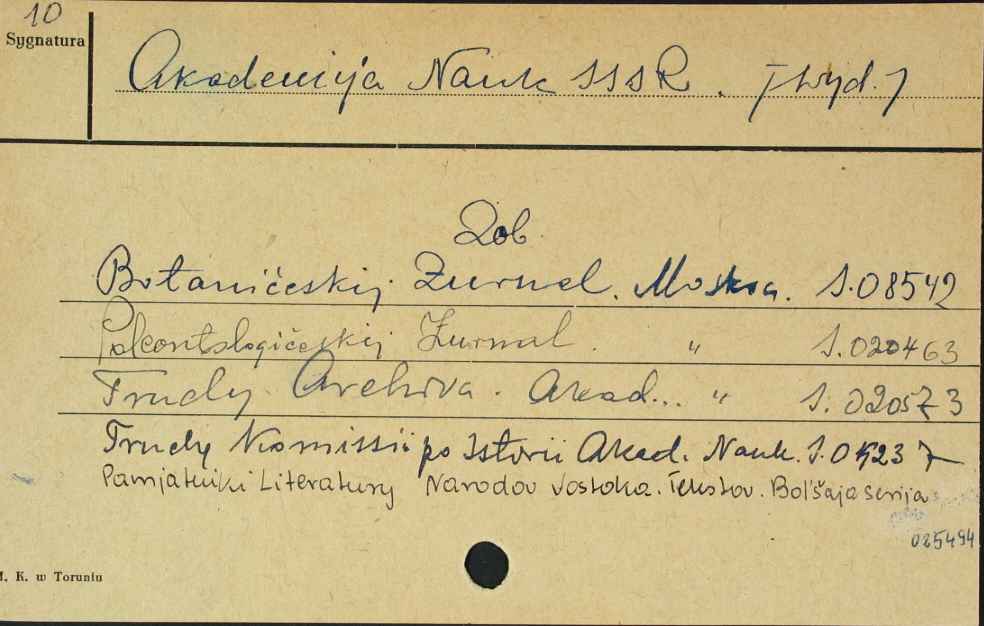 10
Sygnatura
Akademija Nauk SSSR. [wyd.]
Zob.
Botaničeskij Žurnal. Moskva. S.08542
Paleontologičeskij Žurnal. " S.020463
Trudy Archiva. Akad... " S. 020573
Trudy Komissii po Istorii Akad. Nauk. S.
Pamjatniki Literatury Narodov Vostoka. Tekstov. Bol'šaja serija
025494
M. K. w Toruniu